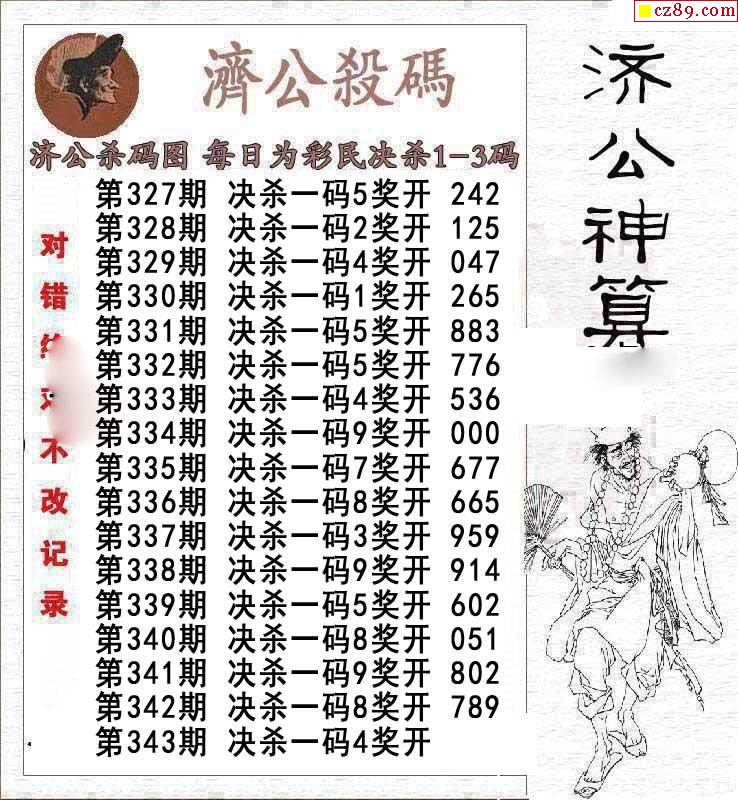 cz89.com
濟公殺碼
济公杀码图 每日为彩民决杀1-3码
第327期 决杀一码5奖开 242
第328期 决杀一码2奖开 125
第329期 决杀一码4奖开 047
第330期 决杀一码1奖开 265
第331期 决杀一码5奖开 883
第332期 决杀一码5奖开 776
第333期 决杀一码4奖开 536
第334期 决杀一码9奖开 000
第335期 决杀一码7奖开 677
第336期 决杀一码8奖开 665
第337期 决杀一码3奖开 959
第338期 决杀一码9奖开 914
第339期 决杀一码5奖开 602
第340期 决杀一码8奖开 051
第341期 决杀一码9奖开 802
第342期 决杀一码8奖开 789
第343期 决杀一码4奖开
对错不改记录
济公神算